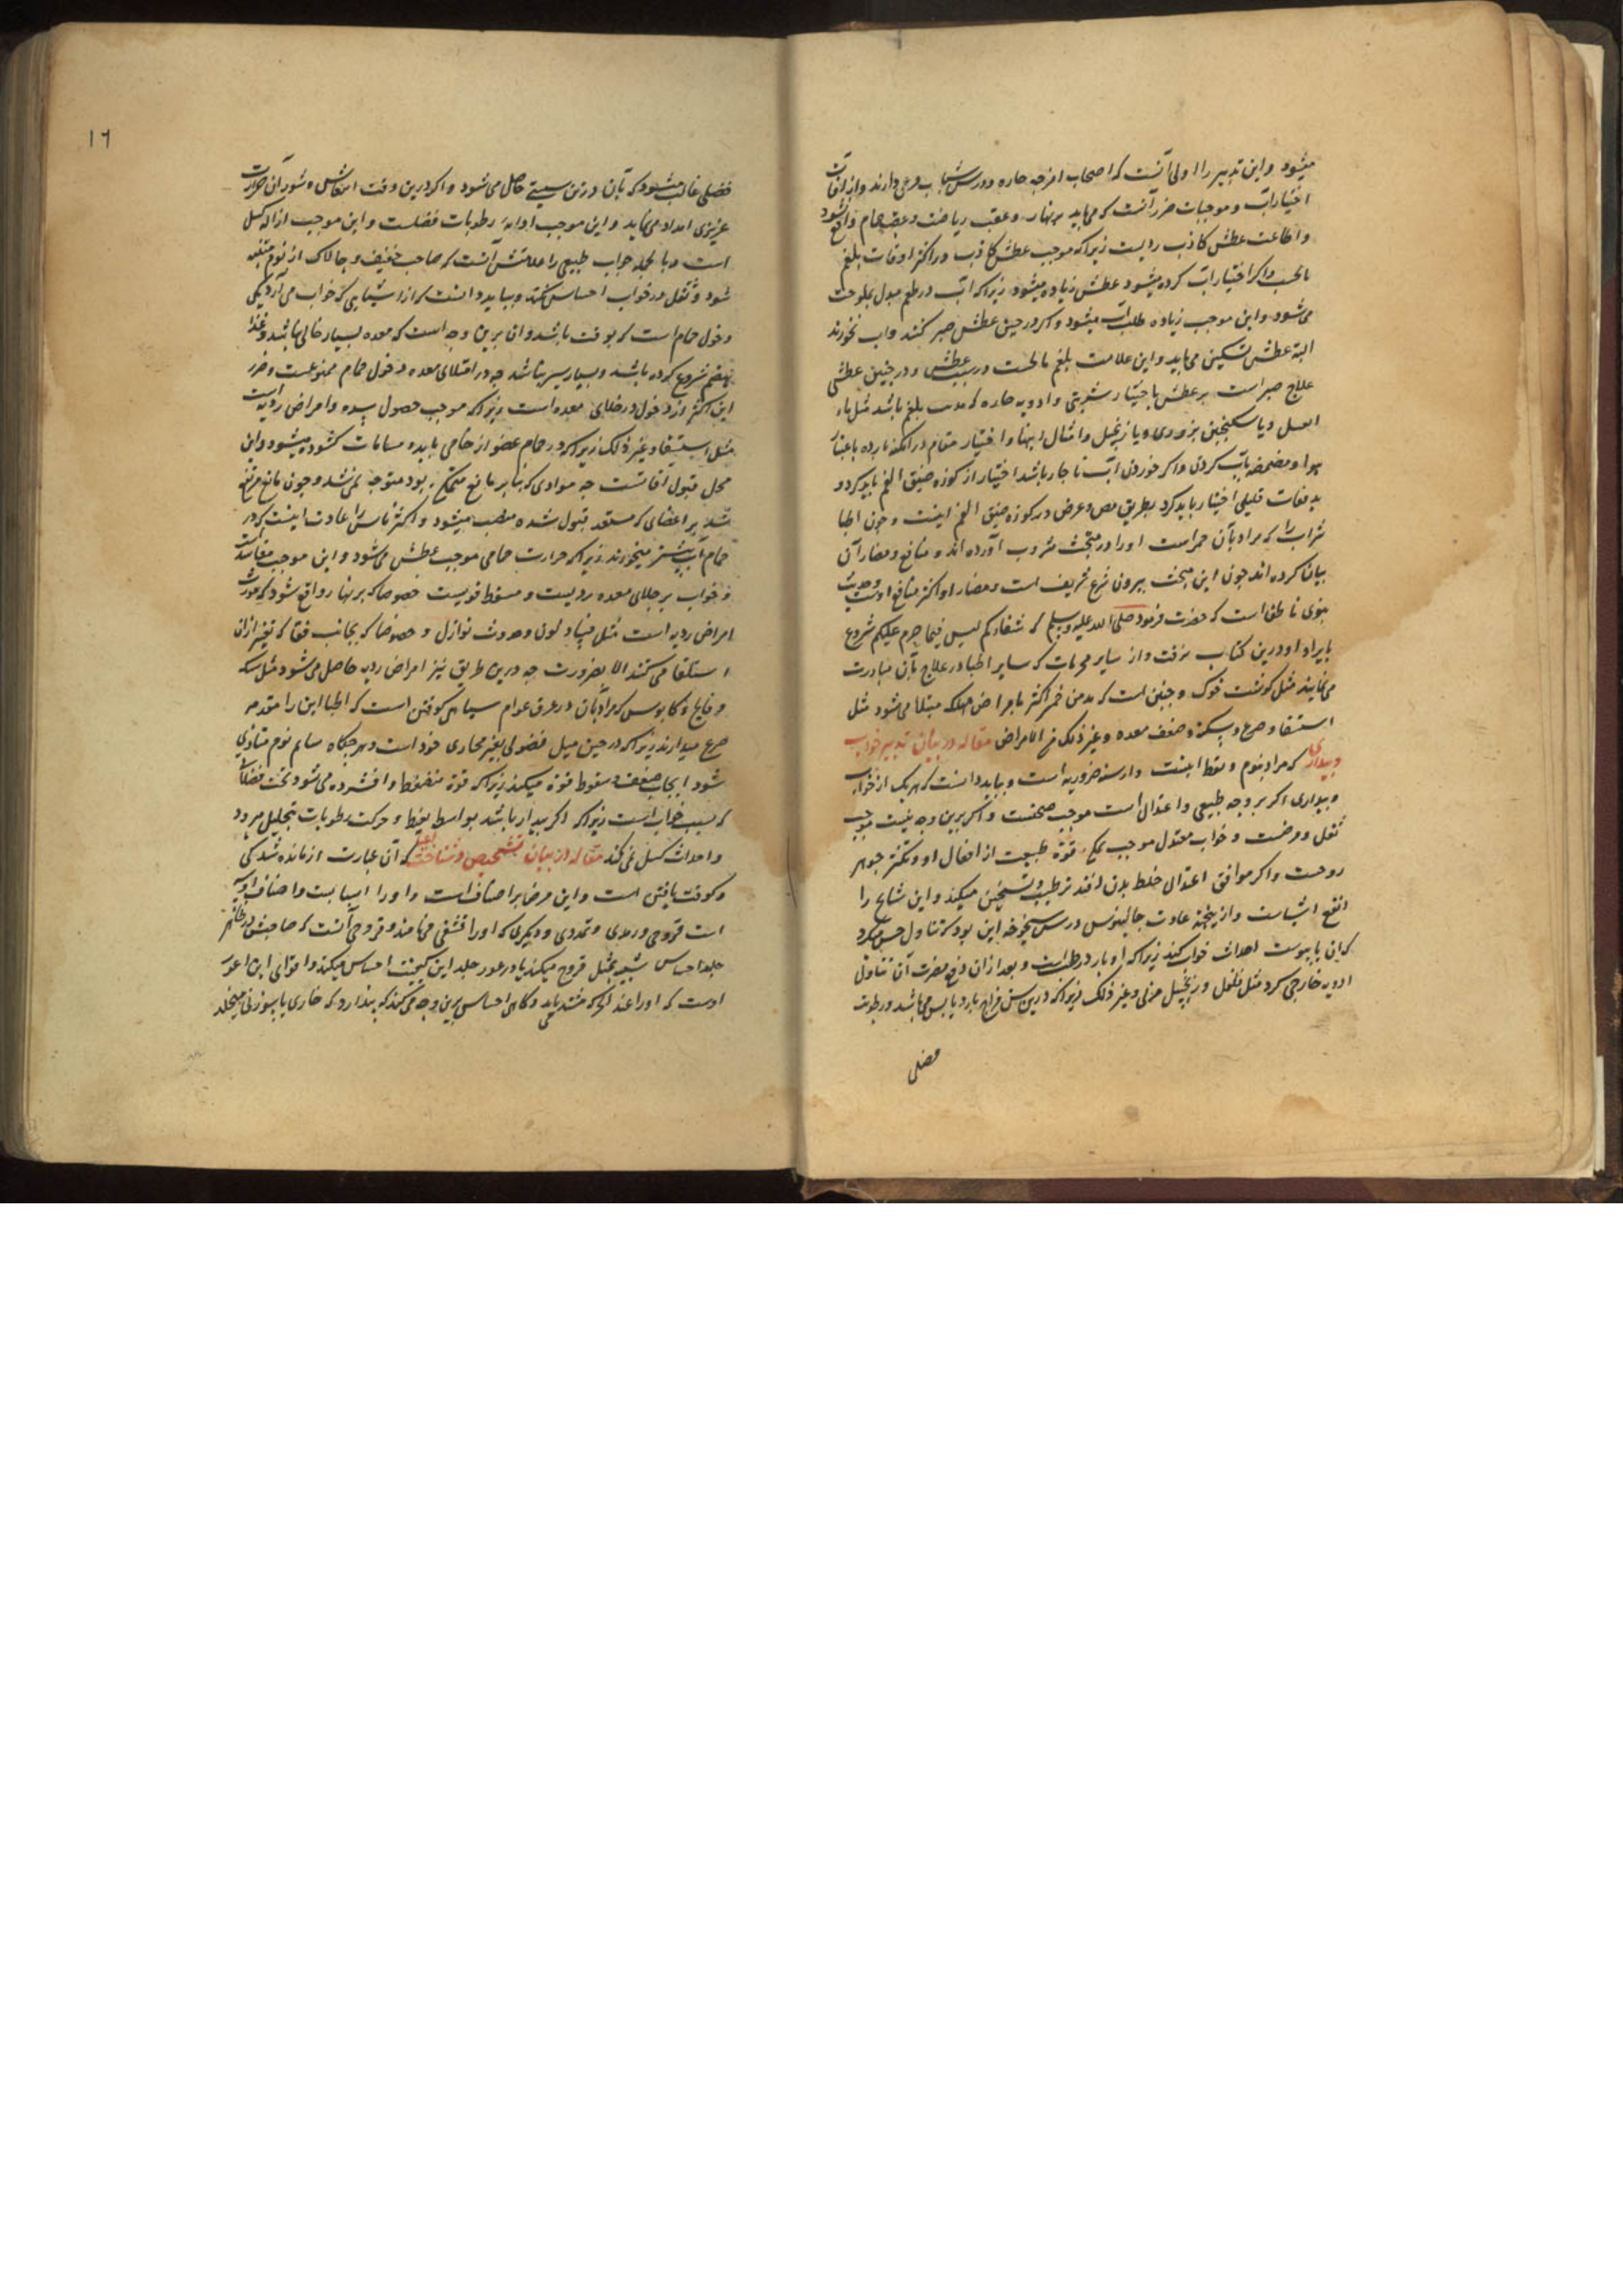 میشود و این تدبیر را اولی آنست که اصحاب امزجه حاره و در سن شباب مرعی دارند و از آفات
اختیار آب و موجبات ضرر آنست که می باید بر نهار و عقب ریاضت و عقب حمام واقع نشود
و اطاعت عطش کاذب ردیست زیرا که موجب عطش کاذب در اکثر اوقات بلغم
مالحست و اگر اختیار آب کرده میشود عطش زیاده میشود زیرا که آب در طعم مبدل بملوحت
می شود و این موجب زیاده طلب آب میشود و اگر در حین عطش صبر کنند و آب نخورند
البته عطش تسکین می یابد و این علامت بلغم مالحست در سبب عطش و در چنین عطشی
علاج صبر است بر عطش یا اختیار شربتی و ادویه حاره که مذیب بلغم باشد مثل ماء
العسل و یا سکنجبین بزوری و یا زنجبیل و امثال اینها و اختیار مقام در امکنه بارده باعتبار
هوا و مضمضه بآب کردن و اگر خوردن آب ناچار باشد اختیار از کوزه ضیق الفم باید کرد و
بدفعات قلیلی اختیار باید کرد بطریق مص و عرض در کوزه ضیق الفم اینست و چون اطبا
شراب را که مراد بآن خمر است او را در مبحث مشروب آورده اند و منافع و مضار آن
بیان کرده اند چون این مبحث بیرون شرع شریف است و مضار او اکثر منافع اوست و حدیث
نبوی ناطق است که حضرت فرمود صلی الله علیه وسلم که شفاءکم لیس فیما حرم علیکم شروع
بایراد او درین کتاب نرفت و از سایر محرمات که سایر اطبا در علاج بآن مبادرت
می نمایند مثل گوشت خوک و چنین است که مدمن خمر اکثر بامراض مهلکه مبتلا می شود مثل
استسقا و صرع و سکته و ضعف معده و غیر ذلک من الامراض مقاله در بیان تدبیر خواب
و بیداری که مراد بنوم و یقظا اینست و از سته ضروریه است و باید دانست که هر یک از خواب
و بیداری اگر بر وجه طبیعی و اعتدال است موجب صحتست و اگر برین وجه نیست موجب
ثقل و مرضست و خواب معتدل موجب قوة طبیعت از افعال او و تکثر جوهر
روحست و اگر موافق اعتدال خلط بدن افتد ترطیب و تسخین میکند و این مشایخ را
انفع اشیاست و ازینجهة عادت جالینوس در سن شیخوخه این بود که تناول خس میکرد
که این یا یبوست احداث خواب کند زیرا که او بارد رطبست و بعد از آن دفع مضرت آن تناول
ادویه خارجی کرد مثل فلفل و زنجبیل مربی و غیر ذلک زیرا که درین سن مزاج بارد یابس می باشد و رطوبت
فضلی
١٦
فضلی غالب میشود که بآن درین سن حاصل می شود و اگر درین وقت انتعاش و ثوران حرارت
غریزی امداد می نماید و این موجب اذابه رطوبات فضلست و این موجب ازاله کسل
است و بالجمله خواب طبیعی را علامتش آنست که صاحب خفیف و چالاک از نوم متنبه
شود و ثقل در خواب احساس نکند و بباید دانست که از اشیایی که خواب می آرد یکی
دخول حمام است که بوقت باشد و آن برین وجه است که معده بسیار خالی نباشد و غذا
بهضم شروع کرده باشد و بسیار سیر نباشد چه در امتلای معده دخول حمام ممنوعست و ضرر
این اکثر از دخول در خلای معده است زیرا که موجب حصول سده و امراض ردیه است
مثل استسقا و غیر ذلک زیرا که در حمام عضو از حامی یابد و مسامات گشوده میشود و این
محل قبول آفاتست چه موادی که بنابر مانع بود متوجه نمی شد و چون مانع مرتفع
شد بر اعضای که مستعد قبول شده منصب میشود و اکثر ناس را عادت اینست که در
حمام آب بیشتر میخورند زیرا که حرارت حمامی موجب عطش می شود و این موجب مفاسد است
و خواب بر خلای معده ردیست و مسقط قویست خصوصا که بر نهار واقع شود که مورث
امراض ردیه است مثل فساد لون و حدوث نوازل و خصوصا که بجانب قفا که تعبیر از آن
استلقا می کنند الا بضرورت چه درین طریق نیز امراض ردیه حاصل می شود مثل سکته
و فالج و کابوس که مراد بآن در عرف عوام سیاهی کوفتن است که اطبا این را مقدمه
صرع میدارند زیرا که در حین میل فضول بغیر مجاری خود است و هر جکاه سایم نوم متمادی
شود ایجاب ضعف و سقوط قوة میکند زیرا که قوة منضغط و افشرده می شود تحت فضلات
که سبب خواب است زیرا که اگر بیدار باشد بواسطه یقظه و حرکت رطوبات بتحلیل میرود
و احداث کسل نمی کند مقاله در بیان تشخیص و شناخت اعیا که آن عبارت از مانده شدگی
و کوفت یافتن است و این مرض بر اصناف است و او را اسبابست و اصناف او سه
است قروحی و ورمی و تمددی و دیگری که او را قشفی می نامند و قروحی آنست که صاحبش در ظاهر
جلد احساس شبیه بمثل قروح میکند یا در غور جلد این کیفیت احساس میکند و اقوای این اغور
اوست که او را عند الحرکه مشتد یابد و گاهی احساس برین وجه می کند که پندارد که خاری یا سوزنی میخلد